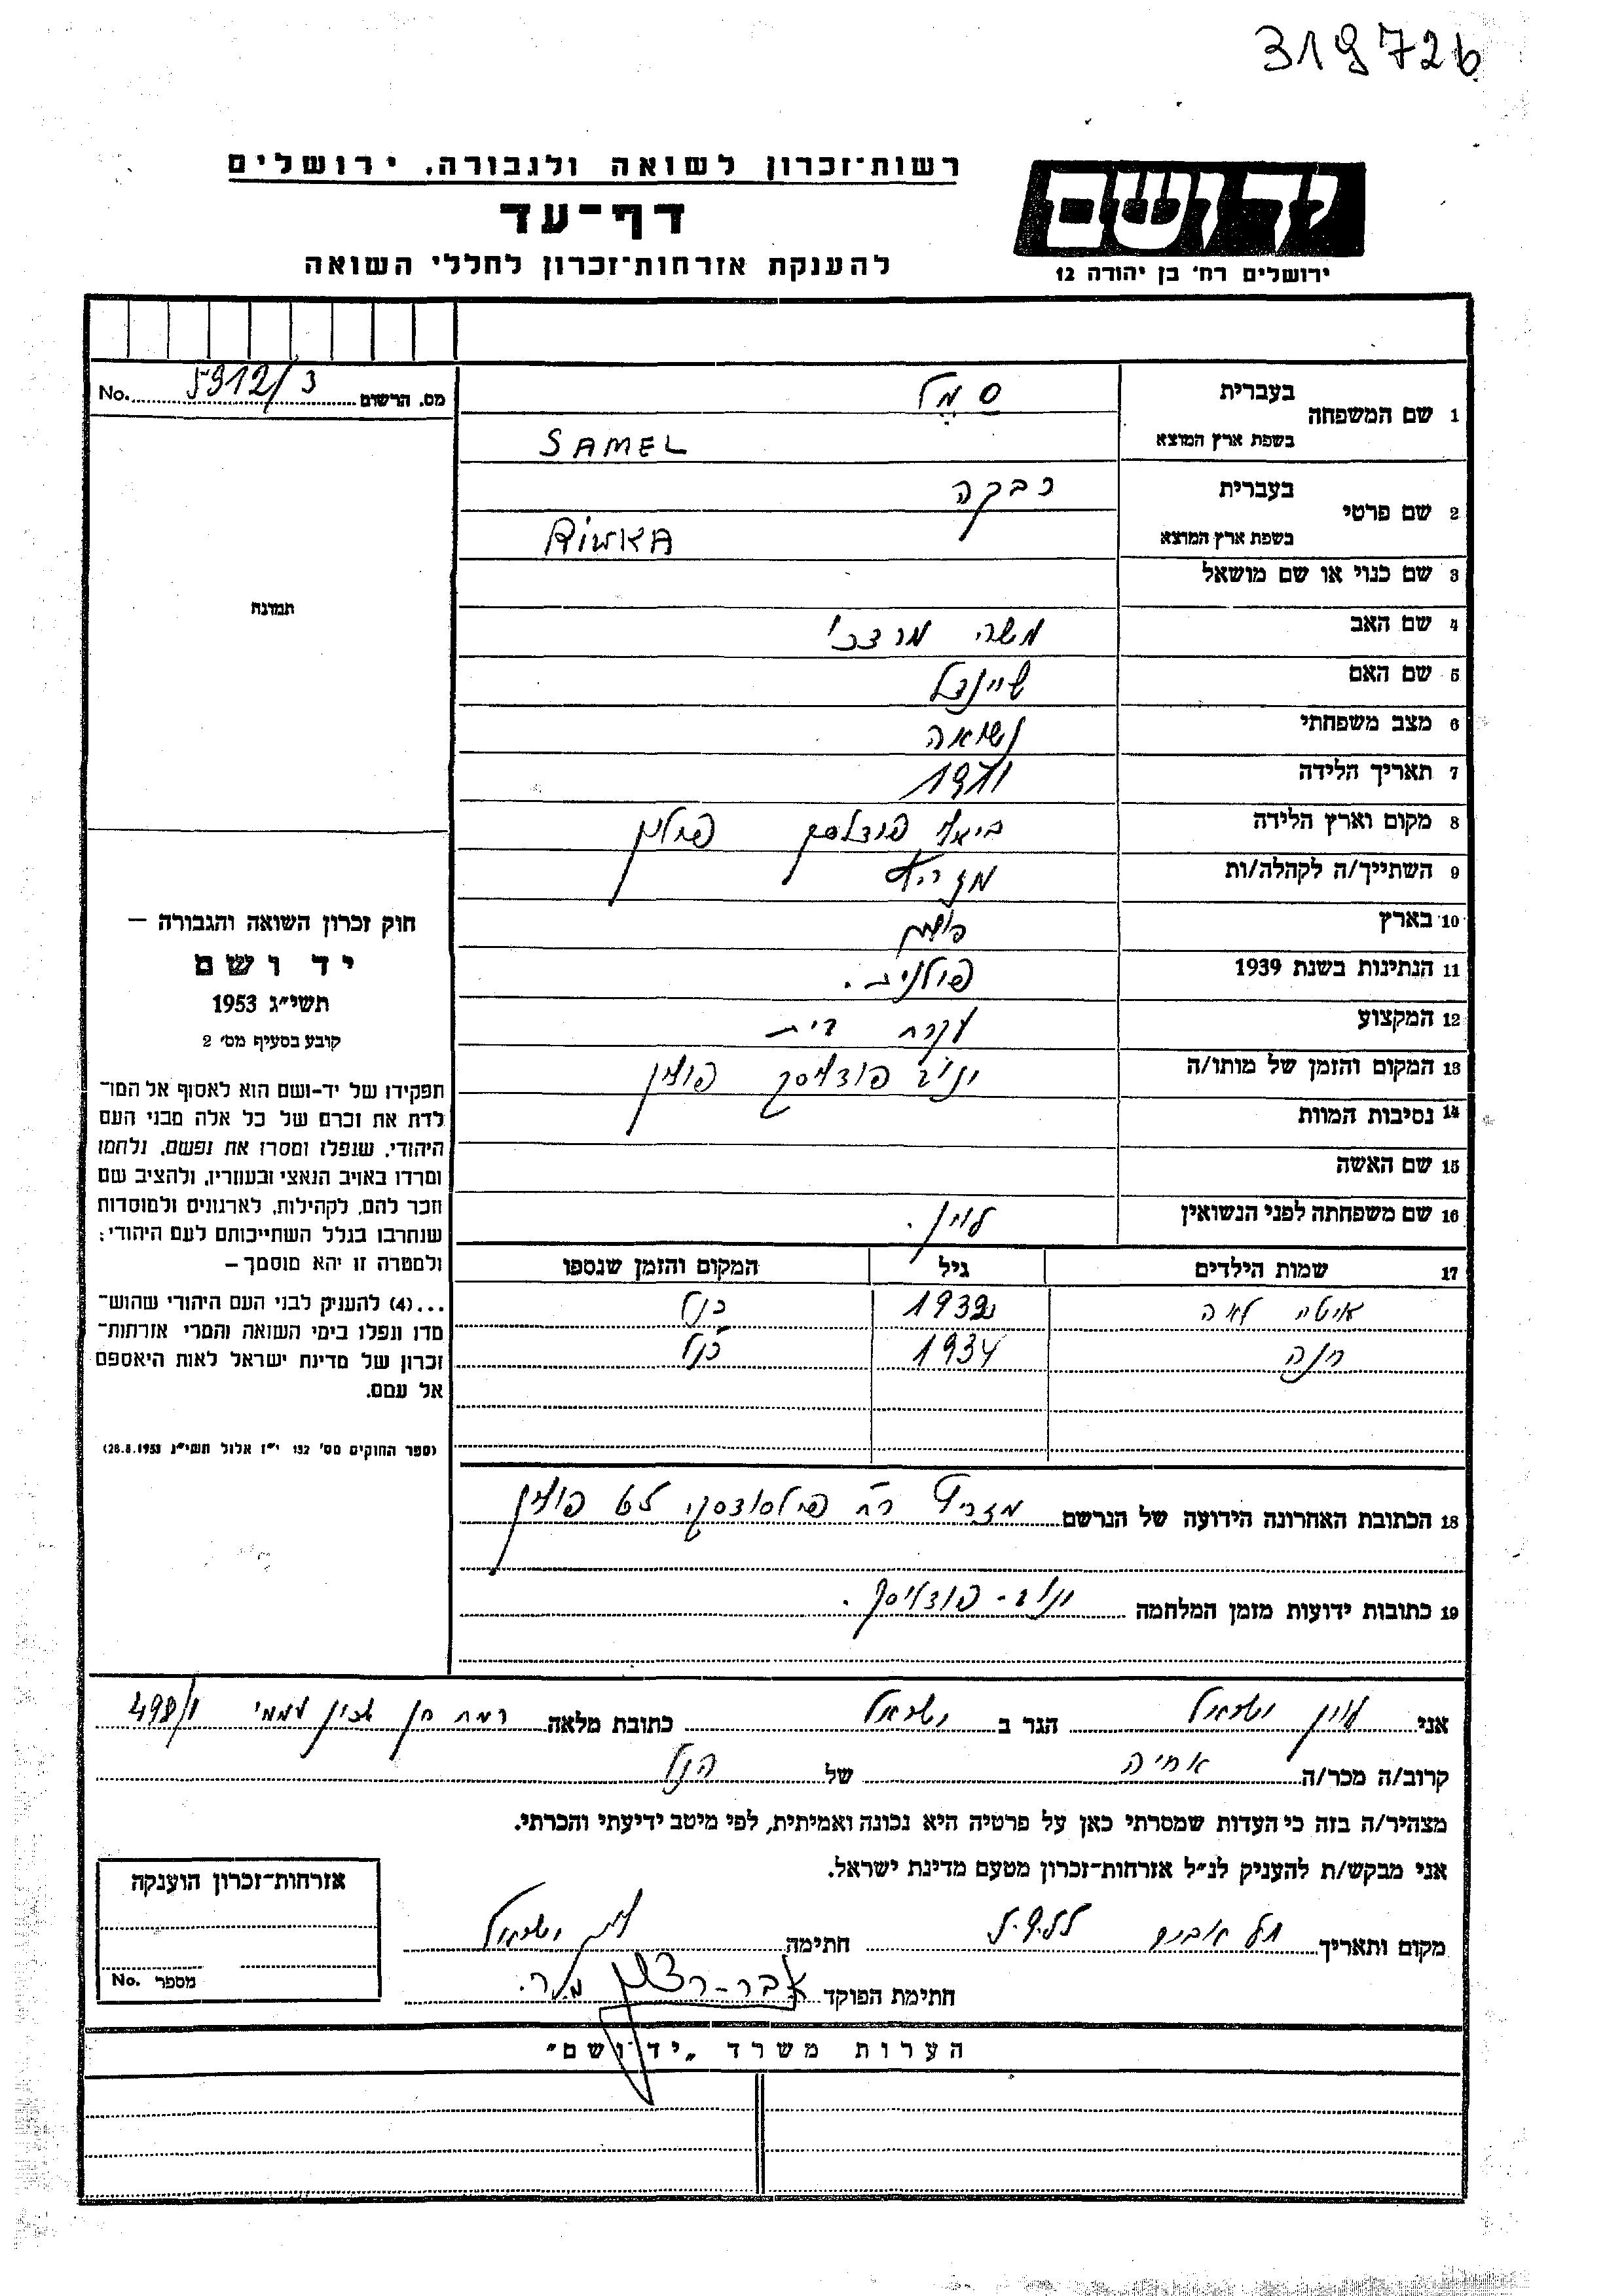 319726
רשות־זכרון לשואה ולגבורה, ירושלים
דף־עד
להענקת אזרחות־זכרון לחללי השואה
יד ושם
ירושלים רח' בן יהודה 12
מס. הרשום 5912/3 No.
1 שם המשפחה
בעברית סמל
בשפת ארץ המוצא SAMEL
2 שם פרטי
בעברית רבקה
בשפת ארץ המוצא RIWKA
3 שם כנוי או שם מושאל
תמונה
4 שם האב משה מרדכי
5 שם האם שיינדל
6 מצב משפחתי נשואה
7 תאריך הלידה
8 מקום וארץ הלידה פודלסק פולין
9 השתייך/ה לקהלה/ות
10 בארץ פולין
11 הנתינות בשנת 1939 פולנית.
12 המקצוע עקרת בית
13 המקום והזמן של מותו/ה ינוב פודליסק פולין
14 נסיבות המוות
15 שם האשה
16 שם משפחתה לפני הנשואין לוין.
17 שמות הילדים גיל המקום והזמן שנספו
איטה לאה 1932 כנ"ל
חנה 1934 כנ"ל
חוק זכרון השואה והגבורה —
יד ושם
תשי״ג 1953
קובע בסעיף מס' 2
תפקידו של יד-ושם הוא לאסוף אל המו־
לדת את זכרם של כל אלה מבני העם
היהודי, שנפלו ומסרו את נפשם, נלחמו
ומרדו באויב הנאצי ובעוזריו, ולהציב שם
וזכר להם, לקהילות, לארגונים ולמוסדות
שנחרבו בגלל השתייכותם לעם היהודי;
ולמטרה זו יהא מוסמך —
...(4) להעניק לבני העם היהודי שהוש־
מדו ונפלו בימי השואה והמרי אזרחות־
זכרון של מדינת ישראל לאות היאספם
אל עמם.
(ספר החוקים מס' 132 י״ז אלול תשי״ג 28.8.1953)
18 הכתובת האחרונה הידועה של הנרשם רח' פילסודסקי פולין
19 כתובות ידועות מזמן המלחמה ינוב - פודליסק.
אני לוין ישראל הגר ב ישראל כתובת מלאה רמת חן שכון עממי 498/1
קרוב/ה מכר/ה אחיה של הנ"ל
מצהיר/ה בזה כי העדות שמסרתי כאן על פרטיה היא נכונה ואמיתית, לפי מיטב ידיעתי והכרתי.
אני מבקש/ת להעניק לנ״ל אזרחות־זכרון מטעם מדינת ישראל.
מקום ותאריך תל אביב חתימה לוין ישראל
חתימת הפוקד
אזרחות־זכרון הוענקה
מספר No.
הערות משרד „יד ושם״